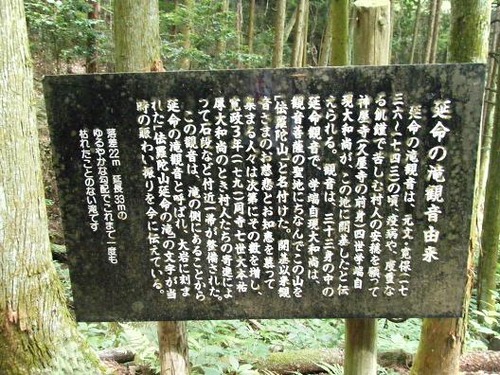 延命の滝観音由来
延命の滝観音は、元文・寛保(一七
三六~一七四三)の頃、疫病や、度重な
る飢饉で苦しむ村人の安穏を願って
神屋寺(久屋寺の前身)四世学端自
現大和尚が、この地に開基したと伝
えられる。観音は、三十三身の中の
延命観音で、学端自現大和尚は、
観音菩薩の聖地にちなんでこの山を
「伝匿陀山」と名付けた。開基以来観
音さまのお慈悲とお知恵を慕って
集まる人々は次第にその数を増し、
寛政3年(一七九一)同寺七世大本祐
厚大和尚のとき村人たちの寄進によ
って石段など付近一帯が整備された。
この観音は、滝の側にあることから
延命の滝観音と呼ばれ、大岩に刻ま
れた「伝匿陀山延命の滝」の文字が当
時の賑わい振りを今に伝えている。
落差22m 延長33mの
ゆるやかな勾配でこれまで一度も
枯れたことのない滝です